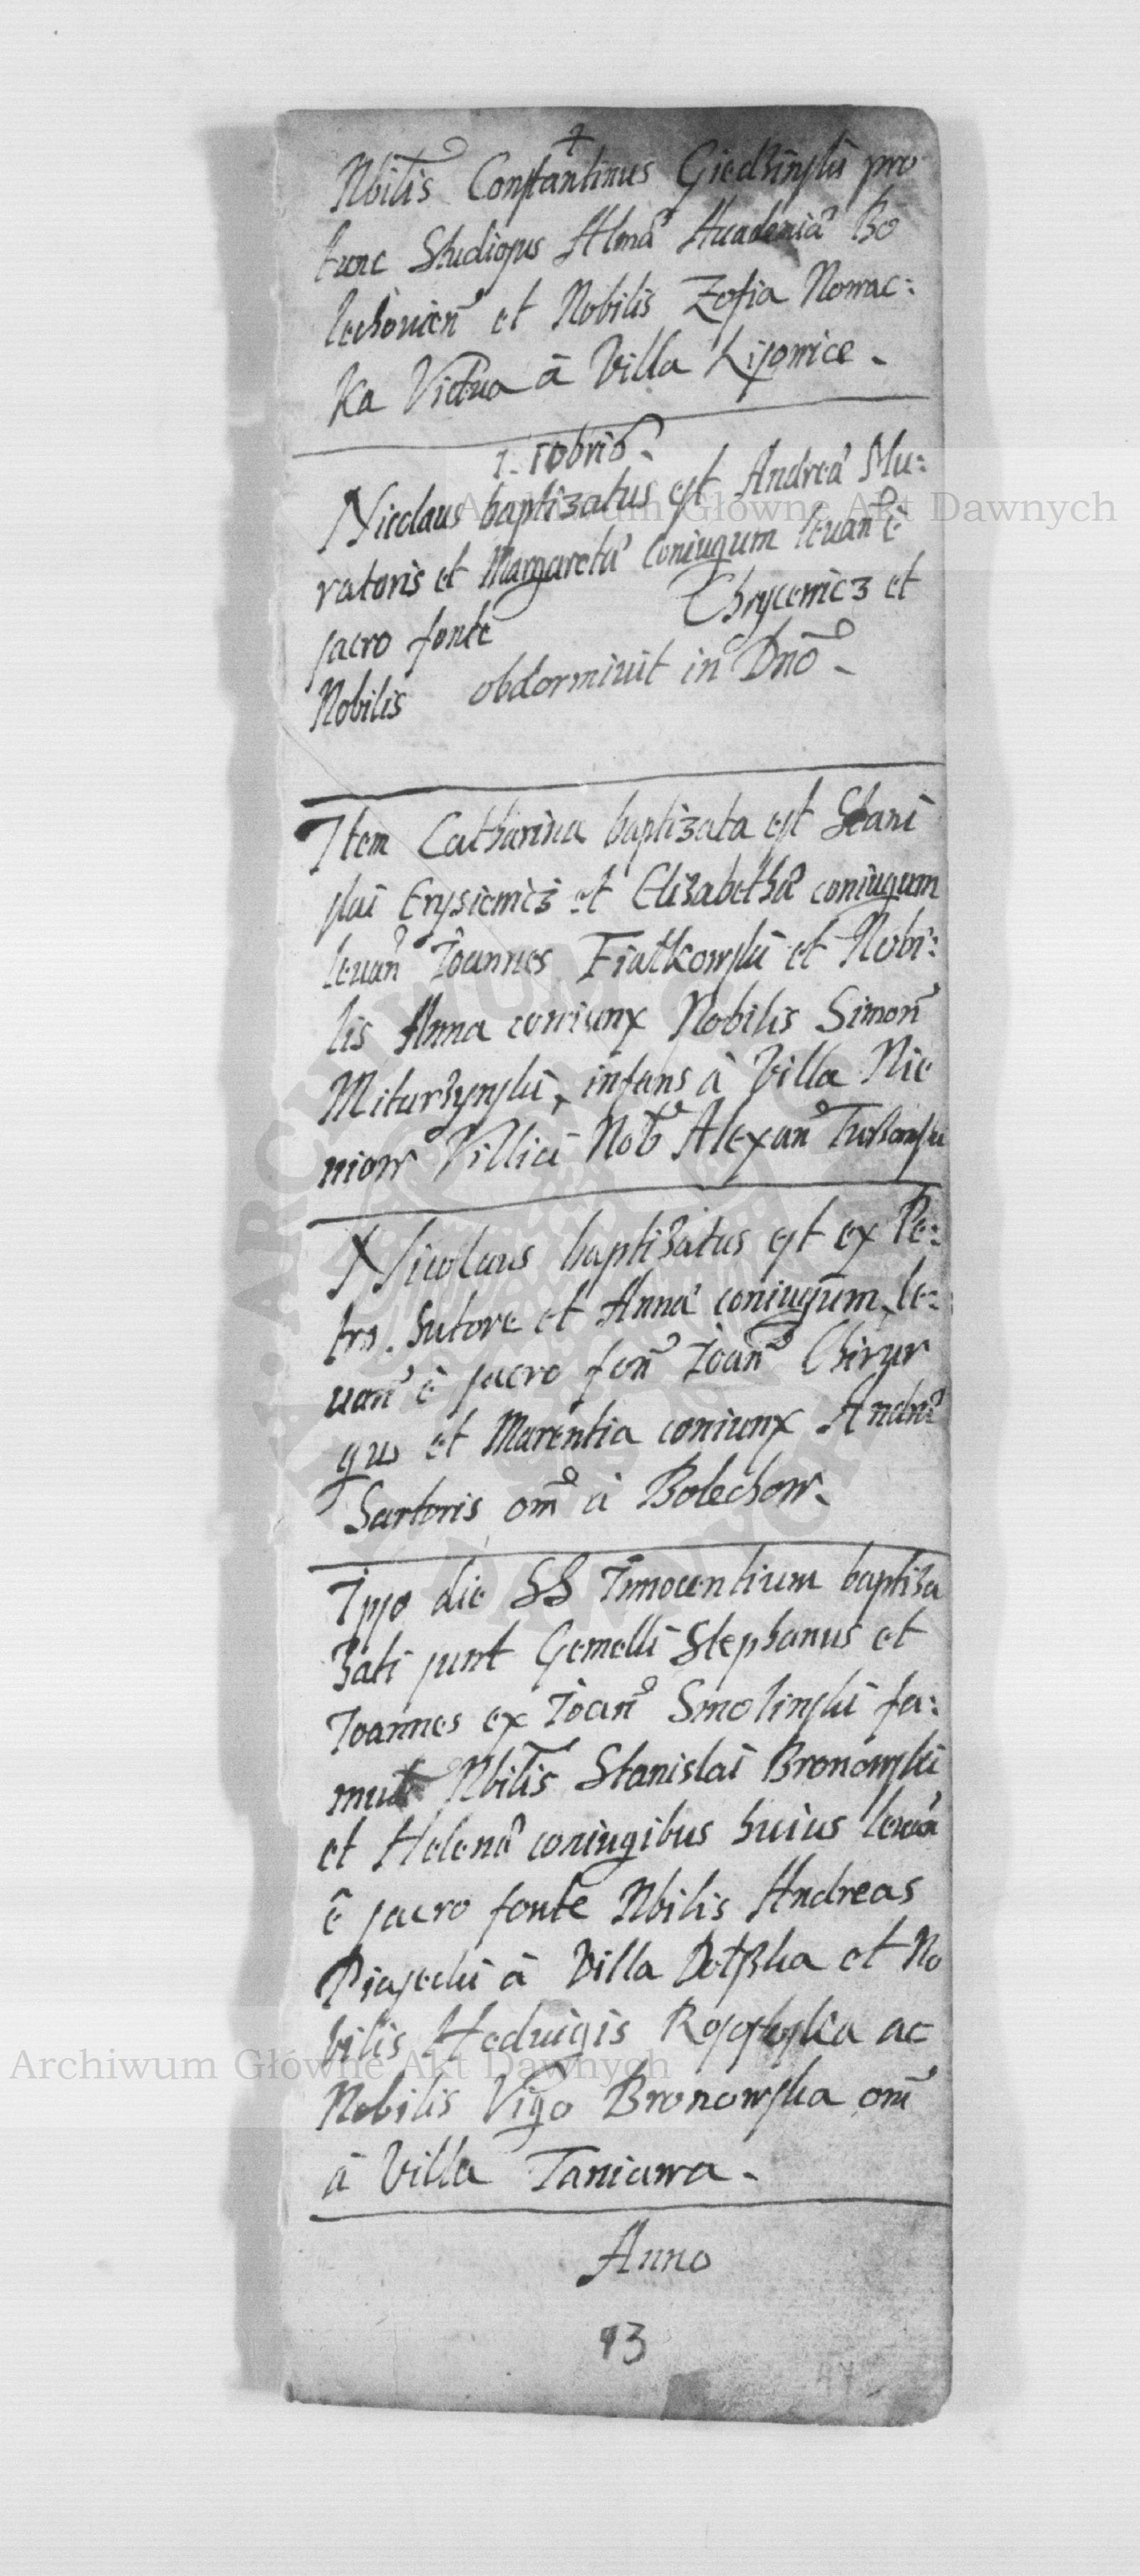 Nbilis Constantinus Giedzinski pro
tunc Studiosus Almae Academiae Bo
lechouien et Nobilis Zofia Nowac:
ka Vidua à Villa Lipowice.
1. 10bris.
Nicolaus baptizatus est Andreae Mu:
ratoris et Margaretae Coniugum leuan è
sacro fonte Chrycewicz et
Nobilis obdormiuit in Dno.
Item Catharina baptizata est Stani
slai Erysiewicz et Elizabethae coniugum
leuan Joannes Fiałkowski et Nobi:
lis Anna coniunx Nobilis Simon
Miturzynski, infans à Villa Nie
niow Villici Nob Alexan
Nicolaus baptizatus est ex Pe:
tro Sutore et Anna coniugum, le:
uan è sacro fon Joan Chirur
gus et Marentia coniunx Andre
Sartoris om à Bolechow.
Ipso die SS Innocentium baptiza
zati sunt Gemelli Stephanus et
Joannes ex Joan Smolinski fa:
mul Nbilis Stanislai Bronowski
et Helena coniugibus huius leuan
è sacro fonte Nbilis Andreas
Piasecki à Villa et No
bilis Heduigis ac
Nobilis Virgo Bronowska om
à Villa Taniawa.
Anno
93
47
Archiwum Główne Akt Dawnych
Archiwum Główne Akt Dawnych